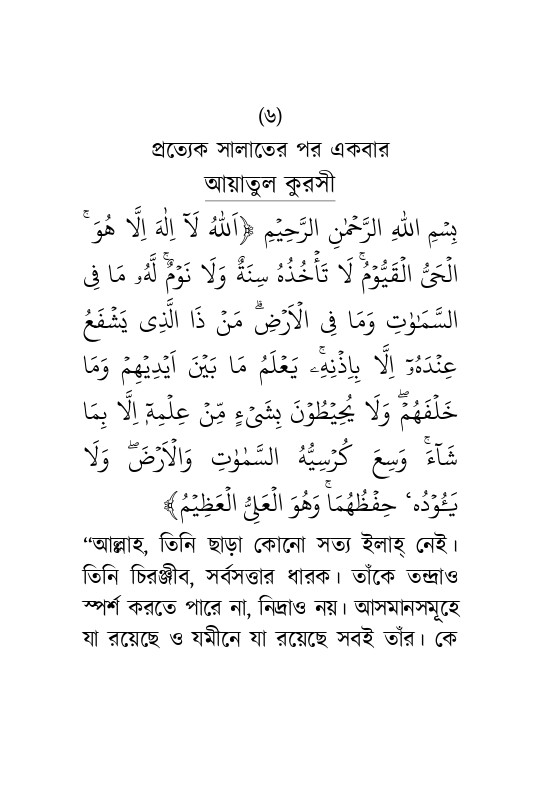 (৬)
প্রত্যেক সালাতের পর একবার
আয়াতুল কুরসী
بِسْمِ اللهِ الرَّحْمٰنِ الرَّحِيْمِ ﴿اَللهُ لَآ اِلٰهَ اِلَّا هُوَ ۚ
الْحَىُّ الْقَيُّوْمُ ۚ لَا تَأْخُذُهٗ سِنَةٌ وَلَا نَوْمٌ ۚ لَّهُۥ مَا فِى
السَّمٰوٰتِ وَمَا فِى الْاَرْضِ ۗ مَنْ ذَا الَّذِى يَشْفَعُ
عِنْدَهُۥٓ اِلَّا بِاِذْنِهٖ ۚ يَعْلَمُ مَا بَيْنَ اَيْدِيْهِمْ وَمَا
خَلْفَهُمْ ۖ وَلَا يُحِيْطُوْنَ بِشَىْءٍ مِّنْ عِلْمِهٖٓ اِلَّا بِمَا
شَآءَ ۚ وَسِعَ كُرْسِيُّهُ السَّمٰوٰتِ وَالْاَرْضَ ۖ وَلَا
يَـُٔوْدُهٗ حِفْظُهُمَا ۚ وَهُوَ الْعَلِىُّ الْعَظِيْمُ﴾
“আল্লাহ, তিনি ছাড়া কোনো সত্য ইলাহ্ নেই।
তিনি চিরঞ্জীব, সর্বসত্তার ধারক। তাঁকে তন্দ্রাও
স্পর্শ করতে পারে না, নিদ্রাও নয়। আসমানসমূহে
যা রয়েছে ও যমীনে যা রয়েছে সবই তাঁর। কে